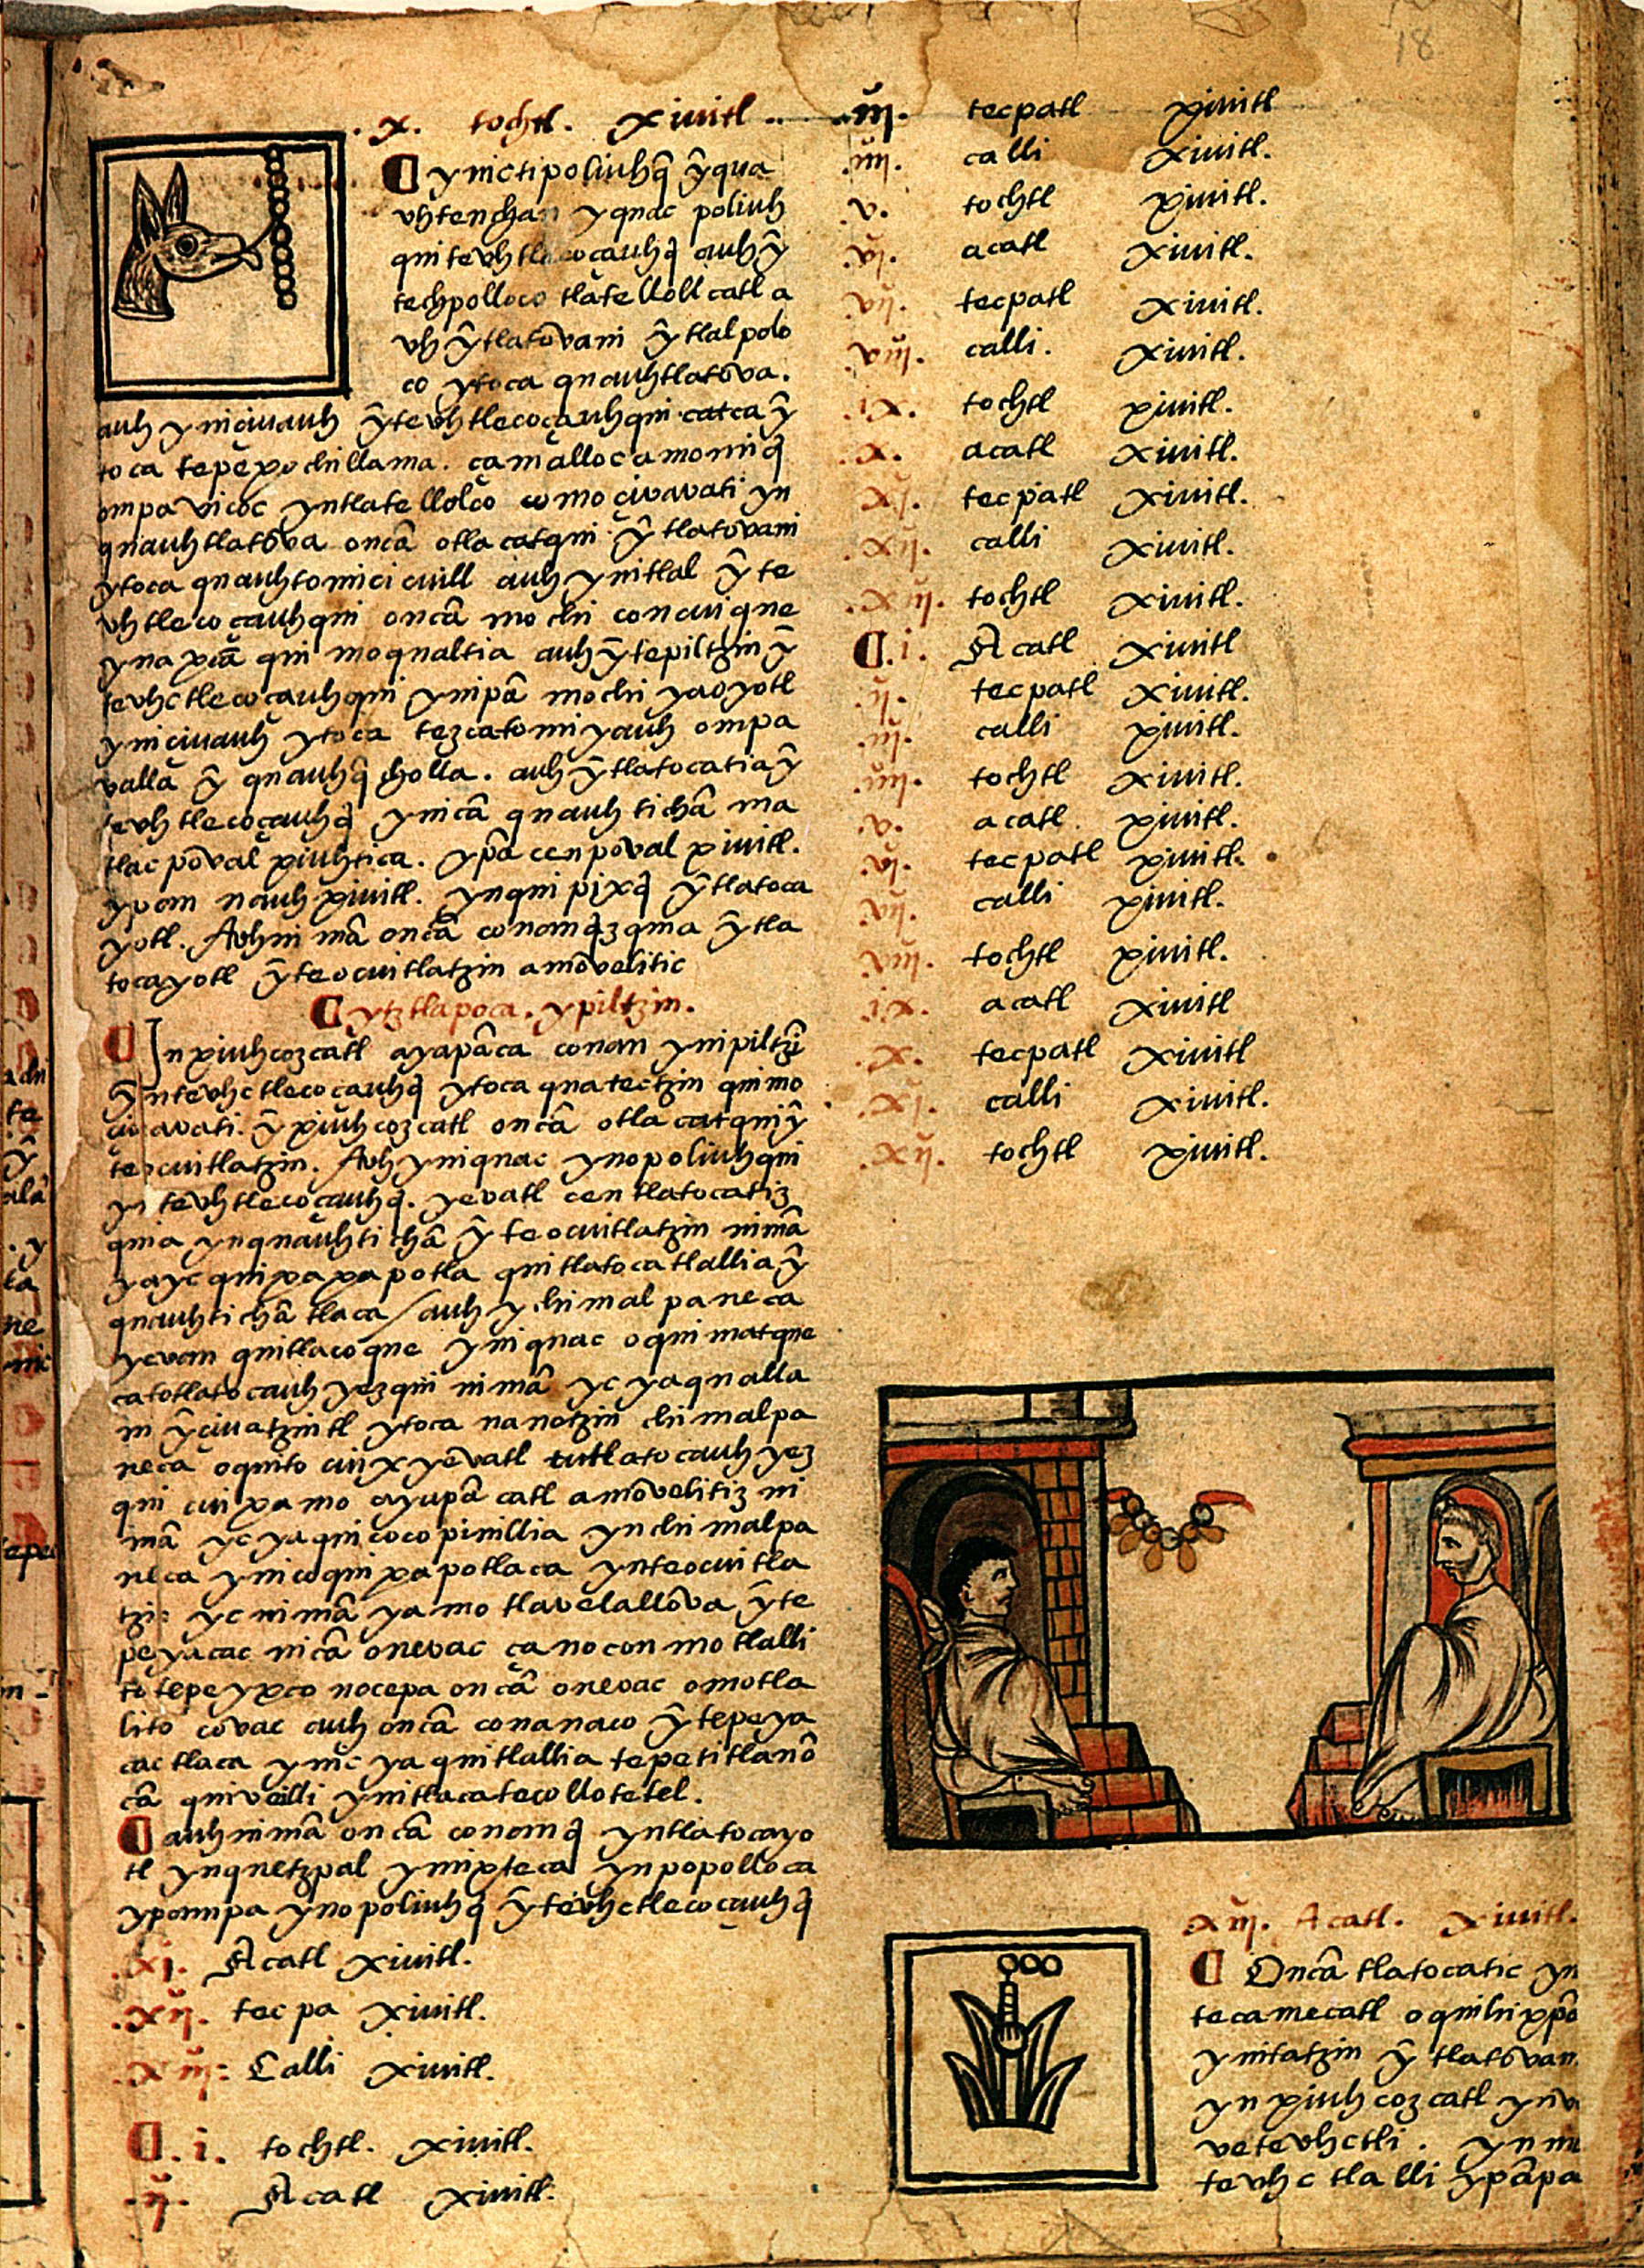 .x. tochtl. xiuitl..
ynictipoliuhq̄ ỹqua
vhtenchan yquac poliuh
quitevhtlecocauhq̄ auhỹ
techpolloco tlatellollcatl a
vhỹtlatōvani ỹtlalpolo
co ytoca quauhtlatōva.
auh yniciuauh ỹtevhtlecocauhqui catca ỹ
toca tepexochillama. çamalloc amomiq̄
ompa vicoc yntlatellolco comociuavati yn
quauhtlatōva oncā otlacatqui ỹtlatovani
ytoca quauhtomicicuill auh ynitlal ỹte
vhtlecocauhqui oncā mochi concuique
ynaxcā quimoqualtia auhỹtepiltzin ỹ
tevhctlecocauhqui ynipā mochi yaoyotl
yniciuauh ytoca tezcatomiyauh ompa
valla ỹ quauhq̄cholla. auhỹtlatocatia ỹ
tevhtlecoçauhq̄ ynicā quauhtichā ma
tlacpōval xiuhtica. ypā cenpōval xiuitl.
yvan nauhxiuitl. ynquipixq̄ ỹtlatoca
yotl. Auhnimā oncā conanq̄zquia ỹtla
tocayotl ỹteocuitlatzin amōvelitic
ytztlapoca. ypiltzin.
Inxiuhcozcatl ayapāca conan ynipiltzī
ỹntevhctlecocauhq̄ ytoca quatectzin quimo
ciuavati. ỹxiuhcozcatl oncā otlacatqui ỹ
teocuitlatzin. Auhyniquac ynopoliuhqui
yn tevhtlecoçauhq̄. yevatl centlatocatiz
quia ynquauhtichā ỹteocuitlatzin nimā
yayc quixaxapotla quitlatocatlallia ỹ
quauhtichātlaca / auhychimalpaneca
yevan quitlacoque yniquac oquimatque
catotlatocauh yezqui nimā yc yaqualla
in ỹciuatzintl ytoca nanotzin chimalpa
neca oquito cuix yēvatl tutlatocauh yez
qui cuixamo ayapācatl amōvelitiz ni
mā yc yaquicocopinillia ynchimalpa
neca ynicoquixapotlaca ynteocuitla
tzin yc nimā yamo tlavelallōva ỹte
peyacac nicā onevac çanoconmotlalli
totepeyxco nocepa oncā onevac omotla
lito covac auh oncā conanaco ỹtepeya
cactlaca ynic yaquitlallia tepetitlanō
cā quiveilli ynitlacatecollotetel.
auhnimā oncā conanq̄ yntlatocayo
tl ynquetzpal ymixteca ynpopolloca
ypampa ynopoliuhq̄ ỹtevhctlecocauhq̄
.xj. Acatl xiuitl.
.xij. tecpa xiuitl.
.xiij. Calli xiuitl.
.i. tochtl. xiuitl.
.ij. Acatl xiuitl.
.iij. tecpatl xiuitl
.iiij. calli xiuitl.
.v. tochtl xiuitl.
.vj. acatl xiuitl.
.vij. tecpatl xiuitl.
.viij. calli. xiuitl.
.ix. tochtl xiuitl.
.x. acatl xiuitl.
.xj. tecpatl xiuitl.
.xij. calli xiuitl.
.xiij. tochtl xiuitl.
.i. Acatl xiuitl
.ij. tecpatl xiuitl.
.iij. calli xiuitl.
.iiij. tochtl xiuitl.
.v. acatl. xiuitl.
.vj. tecpatl xiuitl.
.vij. calli xiuitl.
.viij. tochtl xiuitl.
.ix. acatl xiuitl
.x. tecpatl xiuitl
.xj. calli xiuitl.
.xij. tochtl xiuitl.
xiij. Acatl. xiuitl.
Oncā tlatocatic yn
tecamecatl oquihixpō
ynitatzin ỹ tlatōvan
yn xiuhcozcatl ynv
vetevhctli. yn ni
tevhctlalli ypāpa
18